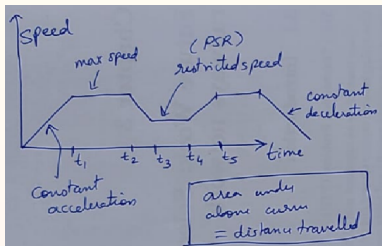 Speed
(PSR)
max speed
restricted speed
constant
deceleration
t₁
t₂
t₃
t₄
t₅
time
constant
acceleration
area under
above curve
= distance travelled